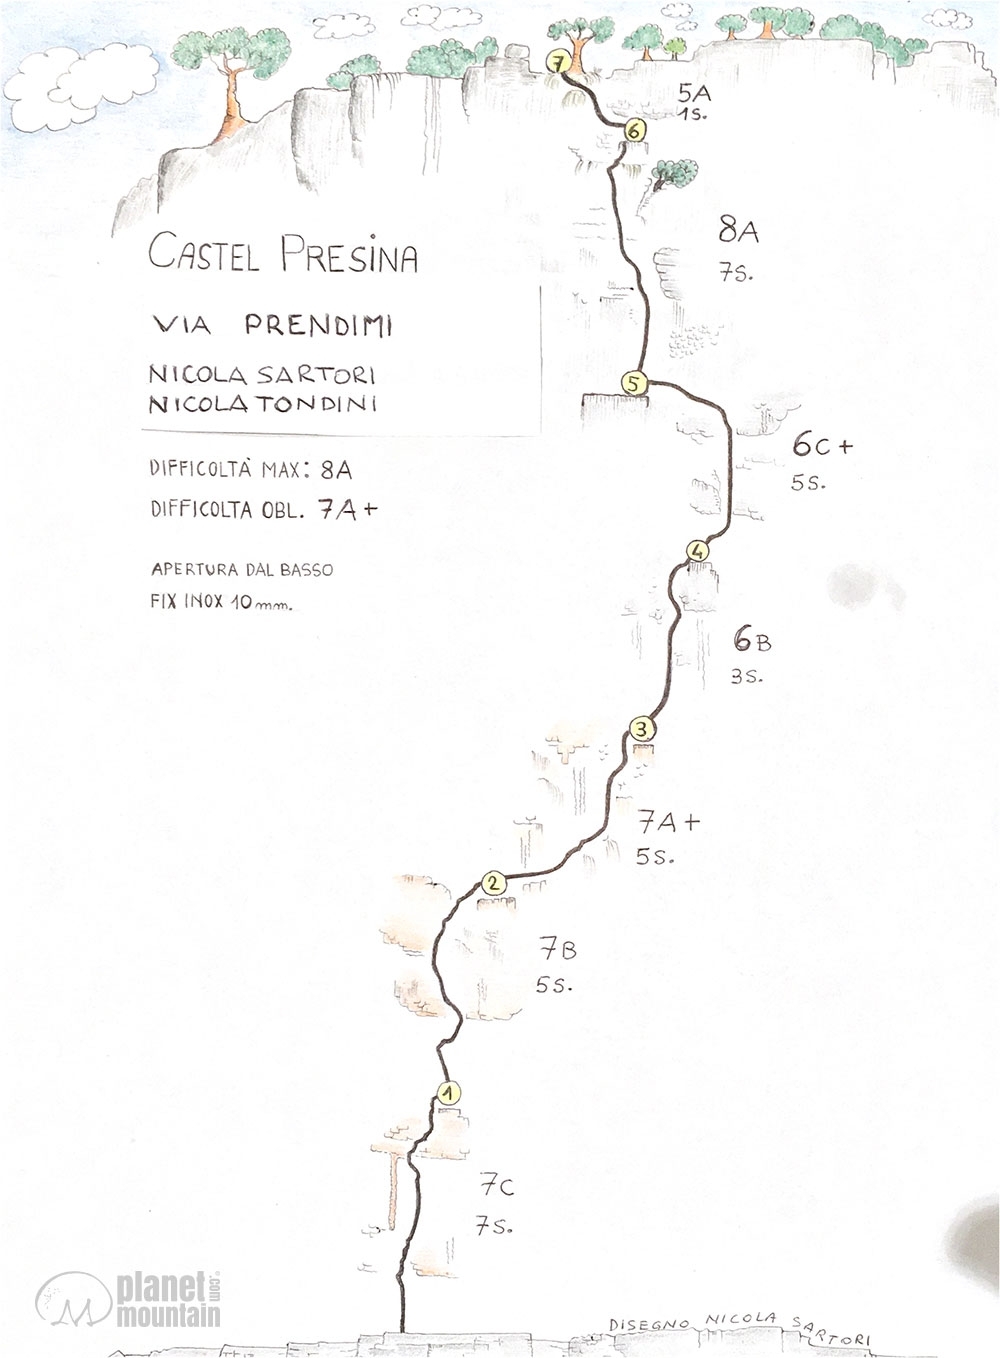 7
5A
1S.
6
8A
7S.
CASTEL PRESINA
VIA PRENDIMI
NICOLA SARTORI
NICOLA TONDINI
5
6C+
5S.
DIFFICOLTÀ MAX: 8A
DIFFICOLTA OBL. 7A+
4
APERTURA DAL BASSO
FIX INOX 10 mm.
6B
3S.
3
7A+
5S.
2
7B
5S.
1
7C
7S.
planet
mountain
.com
DISEGNO NICOLA SARTORI